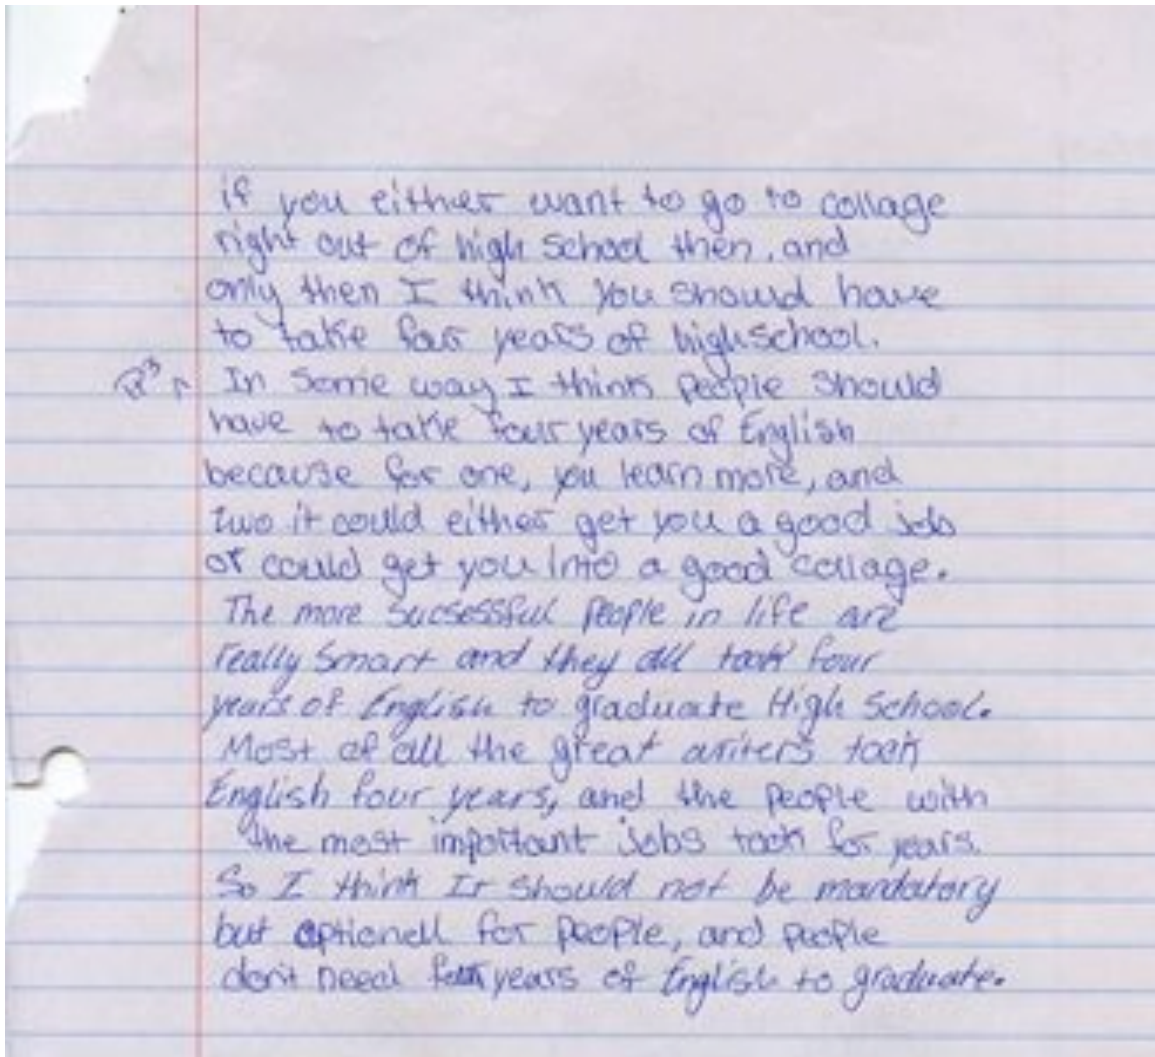 if you either want to go to collage
right out of high school then, and
only then I think you should have
to take four years of highschool.
P3 In some way I think people should
have to take four years of English
because for one, you learn more, and
two it could either get you a good job
or could get you into a good collage.
The more sucsessful people in life are
really smart and they all took four
years of English to graduate High School.
Most of all the great writers took
English four years, and the people with
the most important jobs took for years.
So I think It should not be mandatory
but optionell for people, and people
don't need four years of English to graduate.